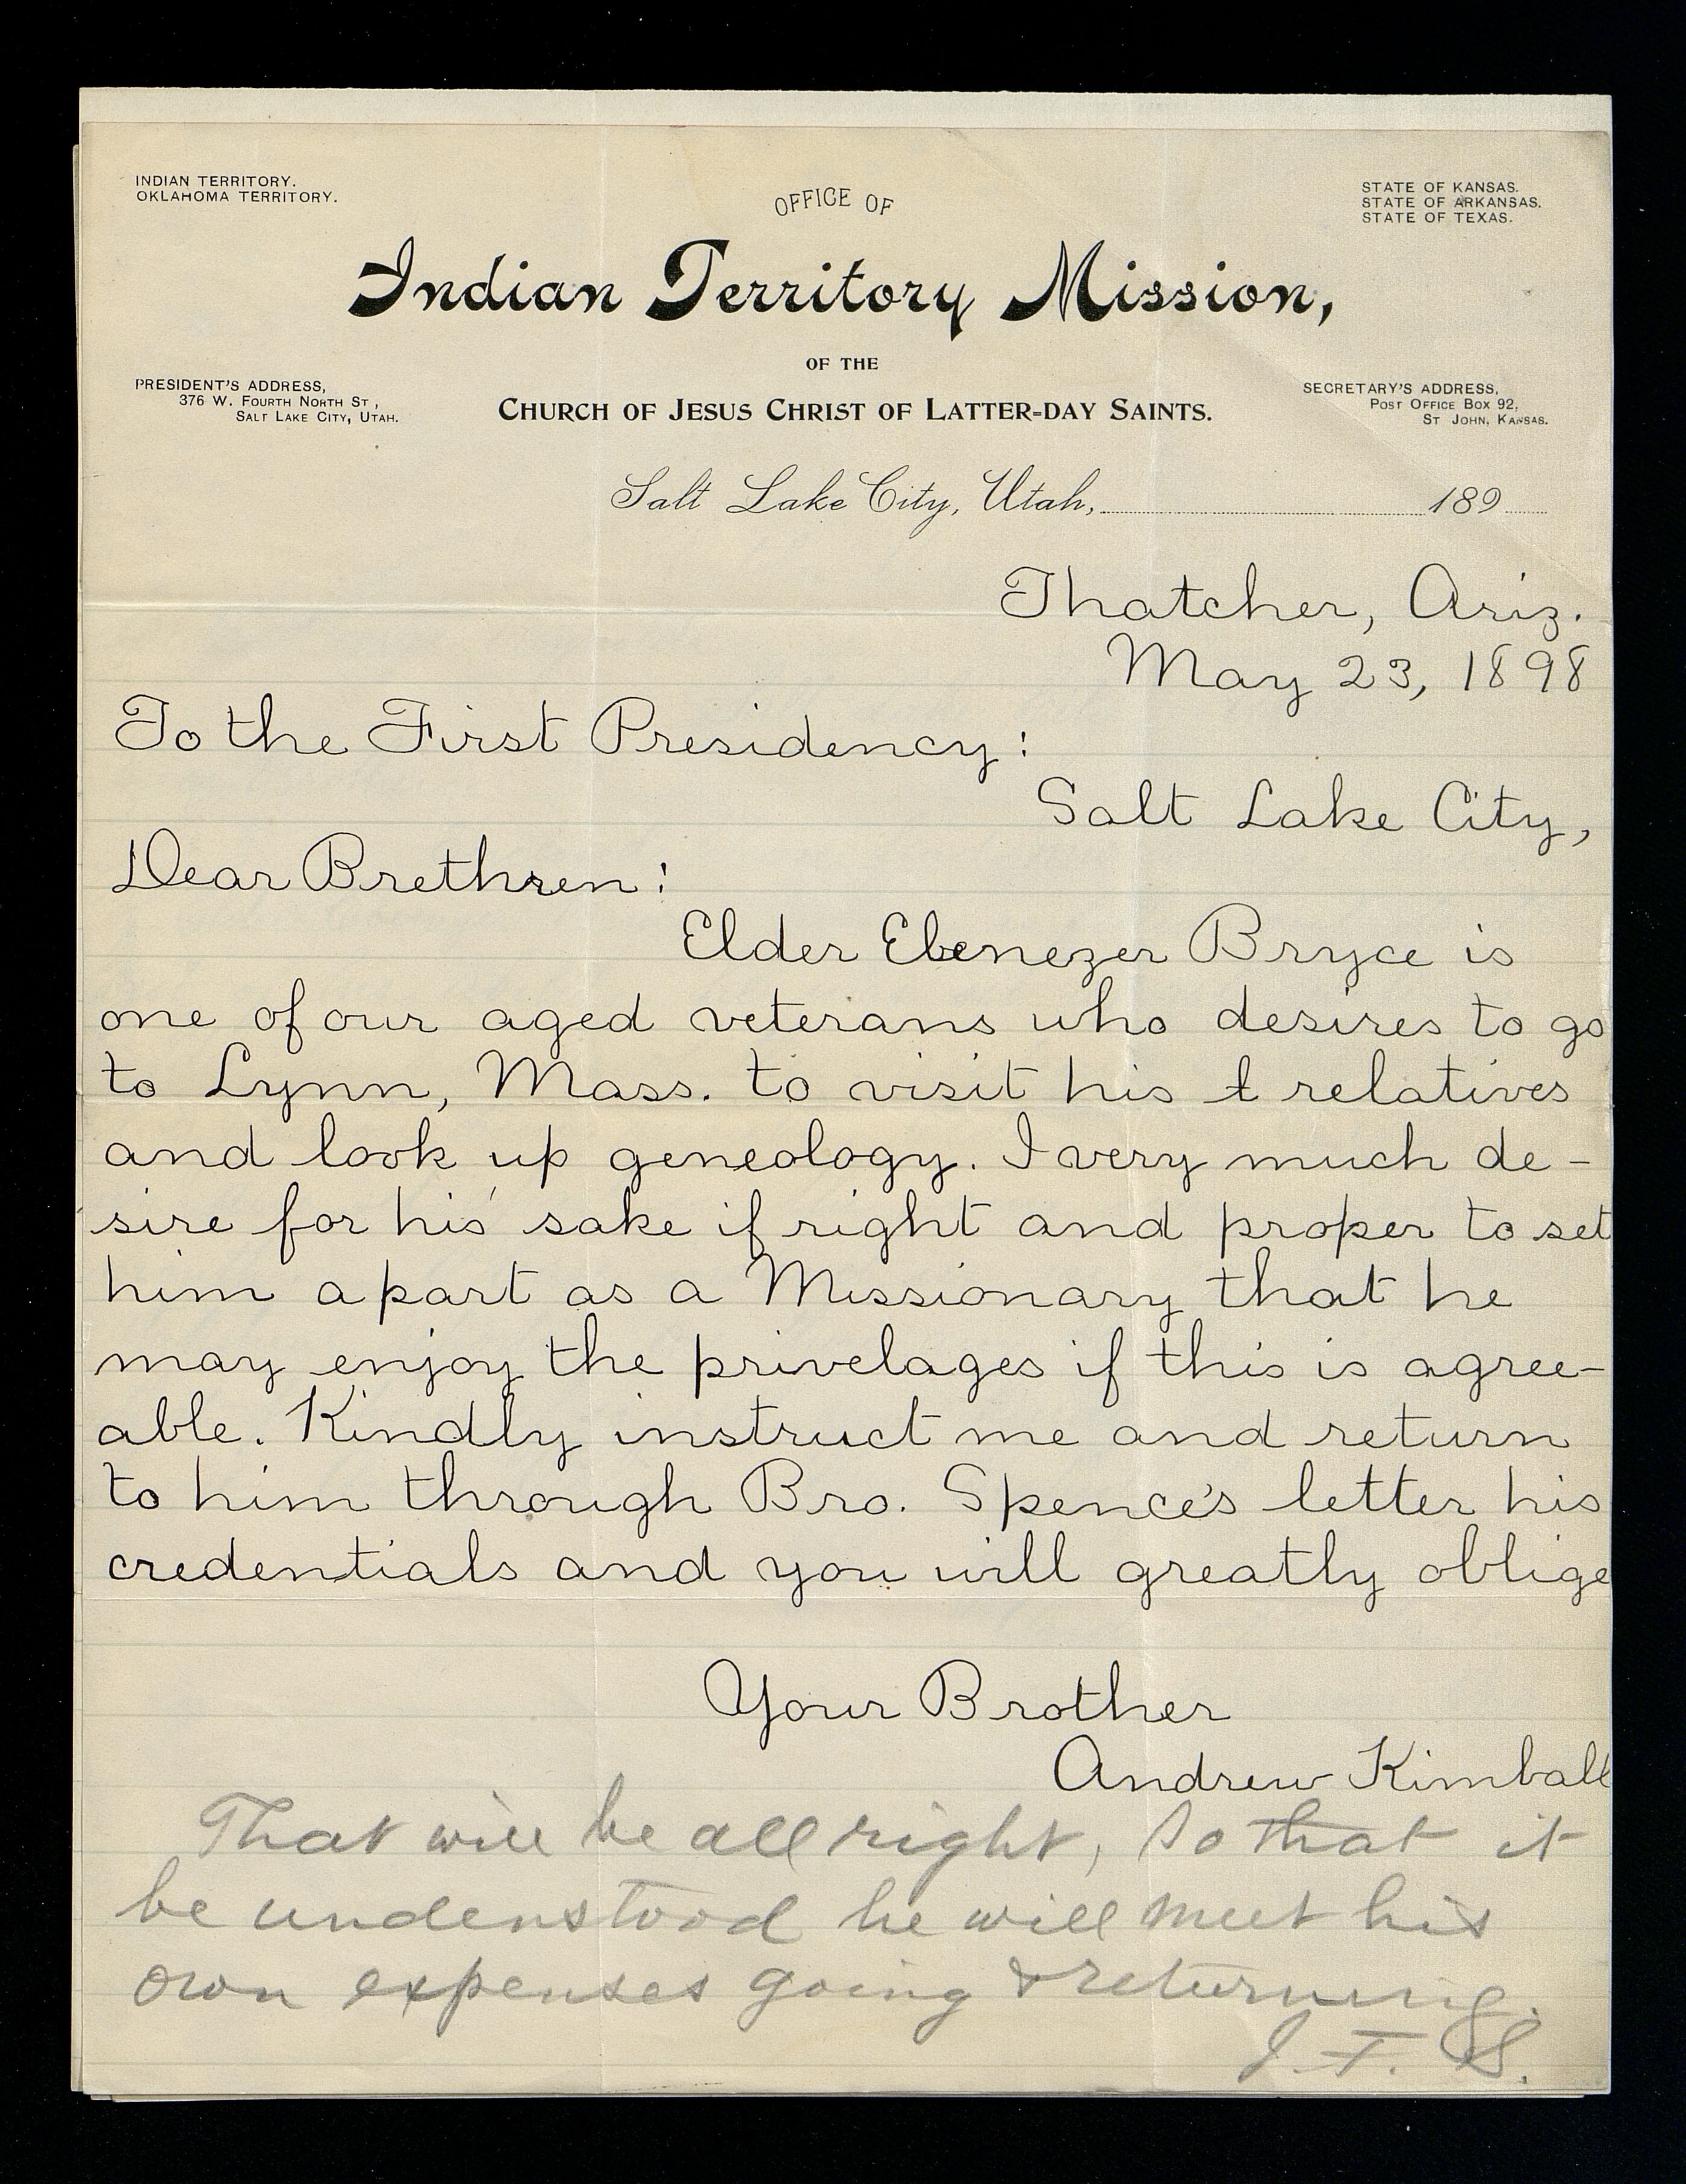 INDIAN TERRITORY.
OKLAHOMA TERRITORY.
OFFICE OF
STATE OF KANSAS.
STATE OF ARKANSAS.
STATE OF TEXAS.
Indian Territory Mission,
OF THE
PRESIDENT'S ADDRESS,
376 W. FOURTH NORTH ST,
SALT LAKE CITY, UTAH.
CHURCH OF JESUS CHRIST OF LATTER-DAY SAINTS.
SECRETARY'S ADDRESS,
POST OFFICE BOX 92,
ST JOHN, KANSAS.
Salt Lake City, Utah, 189
Thatcher, Ariz.
May 23, 1898
To the First Presidency:
Salt Lake City,
Dear Brethren:
Elder Ebenezer Bryce is
one of our aged veterans who desires to go
to Lynn, Mass. to visit his t relatives
and look up geneology. I very much de-
sire for his sake if right and proper to set
him apart as a Missionary that he
may enjoy the privelages if this is agree-
able. Kindly instruct me and return
to him through Bro. Spence's letter his
credentials and you will greatly oblige
Your Brother
Andrew Kimball
That will be all right, so that it
be understood he will meet his
own expenses going & returning.
J. F. S.